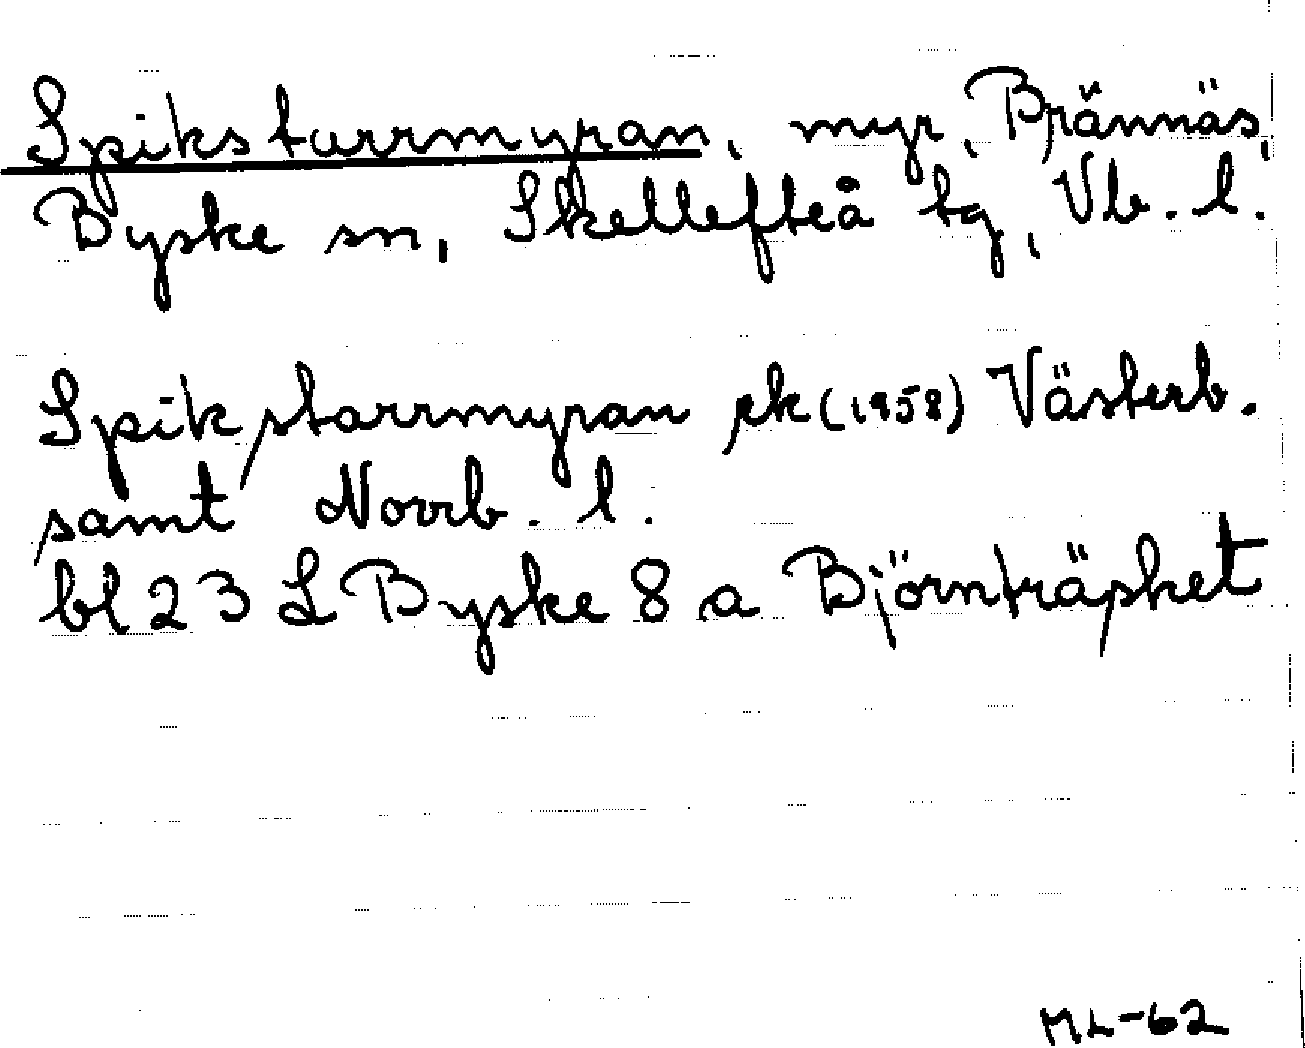 Spikstarrmyran, myr, Brännäs,
Byske sn, Skellefteå tg, Vb. l.
Spikstarrmyran ek (1958) Västerb.
samt Norrb. l.
bl 23 L Byske 8 a Björnträsket
ML-62